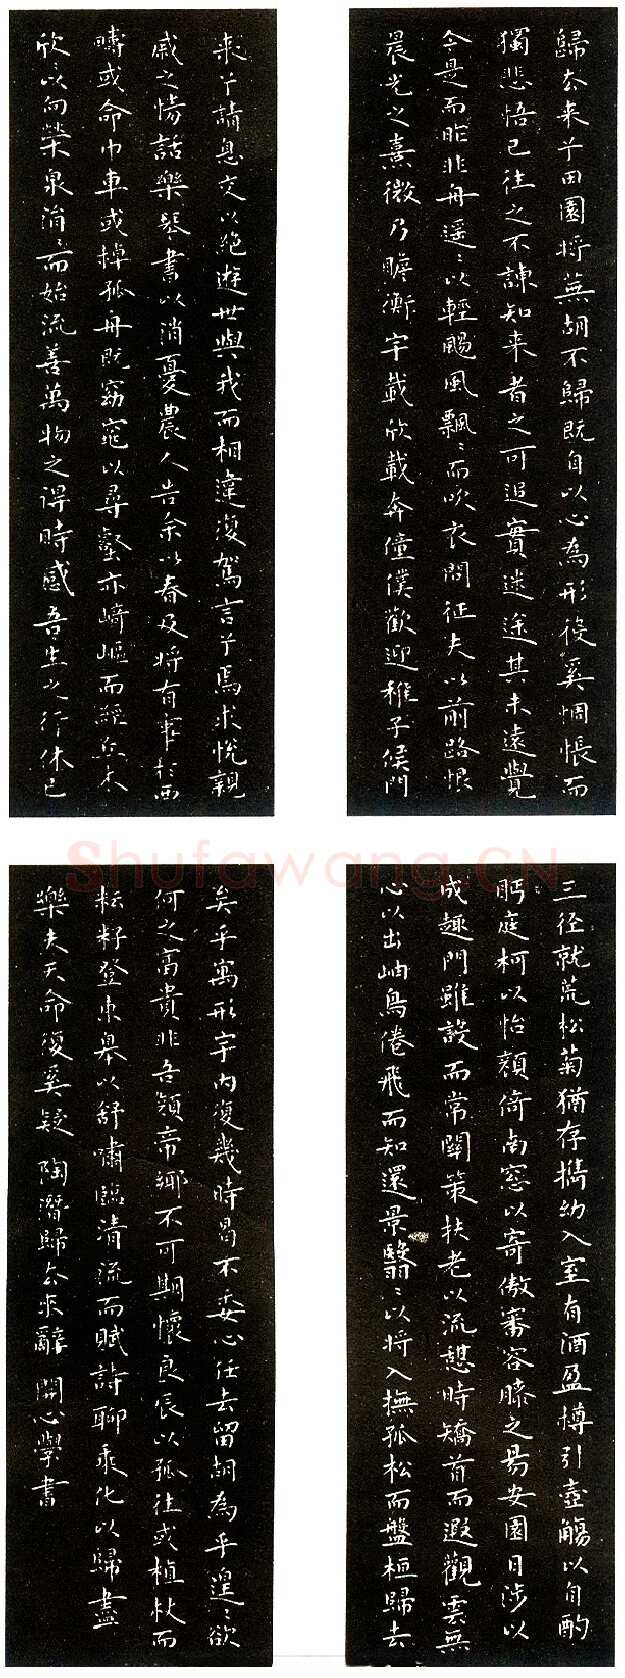 歸去来兮田園将蕪胡不歸既自以心為形役奚惆悵而
獨悲悟已往之不諫知来者之可追實迷途其未遠覺
今是而昨非舟遥〻以輕颺風飄〻而吹衣問征夫以前路恨
晨光之熹微乃瞻衡宇載欣載奔僮僕歡迎稚子候門
三径就荒松菊猶存携幼入室有酒盈樽引壺觴以自酌
眄庭柯以怡顔倚南窓以寄傲審容膝之易安園日涉以
成趣門雖設而常關策扶老以流憩時矯首而遐觀雲無
心以出岫鳥倦飛而知還景翳〻以将入撫孤松而盤桓歸去
来兮請息交以絶遊世與我而相違復駕言兮焉求悦親
戚之情話樂琴書以消憂農人告余以春及将有事於西
疇或命巾車或棹孤舟既窈窕以尋壑亦崎嶇而經丘木
欣〻以向榮泉涓〻而始流善萬物之得時感吾生之行休已
矣乎寓形宇内復幾時曷不委心任去留胡為乎遑〻欲
何之富貴非吾願帝鄉不可期懷良辰以孤往或植杖而
耘耔登東皋以舒嘯臨清流而賦詩聊乗化以歸盡
樂夫天命復奚疑 陶潛歸去来辭 開心學書
Shufawang.CN